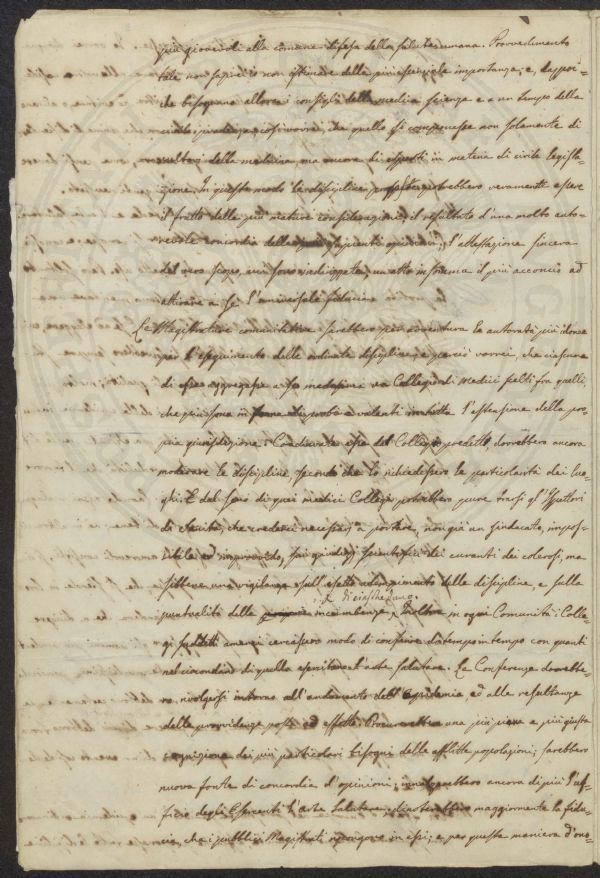 più giovevoli alla comune difesa della salute umana. Provvedimento
tale non saprei io non estimare della più essenziale importanza; e, dappoi=
chè bisognano allora i consigli della medica scienza e a un tempo della
civile giurisprudenza, così vorrei, che quello si componesse non solamente di
cultori della medicina, ma ancora di esperti in materia di civile legisla=
zione. In questo modo le discipline potrebbero veramente essere
il frutto delle più mature considerazioni, il resultato d'una molto auto=
revole concordia delle sapienti opinioni, l'attestazione sincera
del vero scopo, cui sono indirizzate, un atto in somma il più acconcio ad
attirare a sè l'universale fiducia
Le Magistrature comunitative sarebbero per avventura le autorità più idonee
per l'eseguimento delle ordinate discipline; e perciò vorrei, che ciascuna
di esse aggregasse a se medesima un Collegio di Medici scelti fra quelli,
che più sono in fama di probi e valenti in tutta l'estensione della pro=
pria giurisdizione. Coadiuvate esse dal Collegio predetto, dovrebbero ancora
moderare le discipline, secondo che lo richiedessero le particolarità dei luo=
ghi. E dal seno di quei medici Collegi potrebbero pure trarsi gl'Ispettori
di sanità, che crederei necessarj a portare, non già un sindacato, impos=
sibile ed improvvido, sui giudizj scientifici dei curanti dei colerosi, ma
sibbene una vigilanza sull'esatto adempimento delle discipline, e sulla
di ciascheduno.
puntualità delle incumbenze. Inoltre in ogni Comunità i Colle=
gi suddetti amerei cercassero modo di conferire di tempo in tempo con quanti
nel circondario di quella esercitano l'arte salutare. Le Conferenze dovrebbe=
ro rivolgersi intorno all'andamento dell'Epidemia, ed alle resultanze
delle provvidenze poste ad effetto. Procurerebbero una più piena e più giusta
cognizione dei più particolari bisogni delle afflitte popolazioni; sarebbero
nuova fonte di concordia d'opinioni; innalzerebbero ancora di più l'uf=
ficio degli Esercenti l'arte salutare; dimostrerebbero maggiormente la fidu=
cia, che i pubblici Magistrati ripongono in essi; e per questa maniera d'ono=